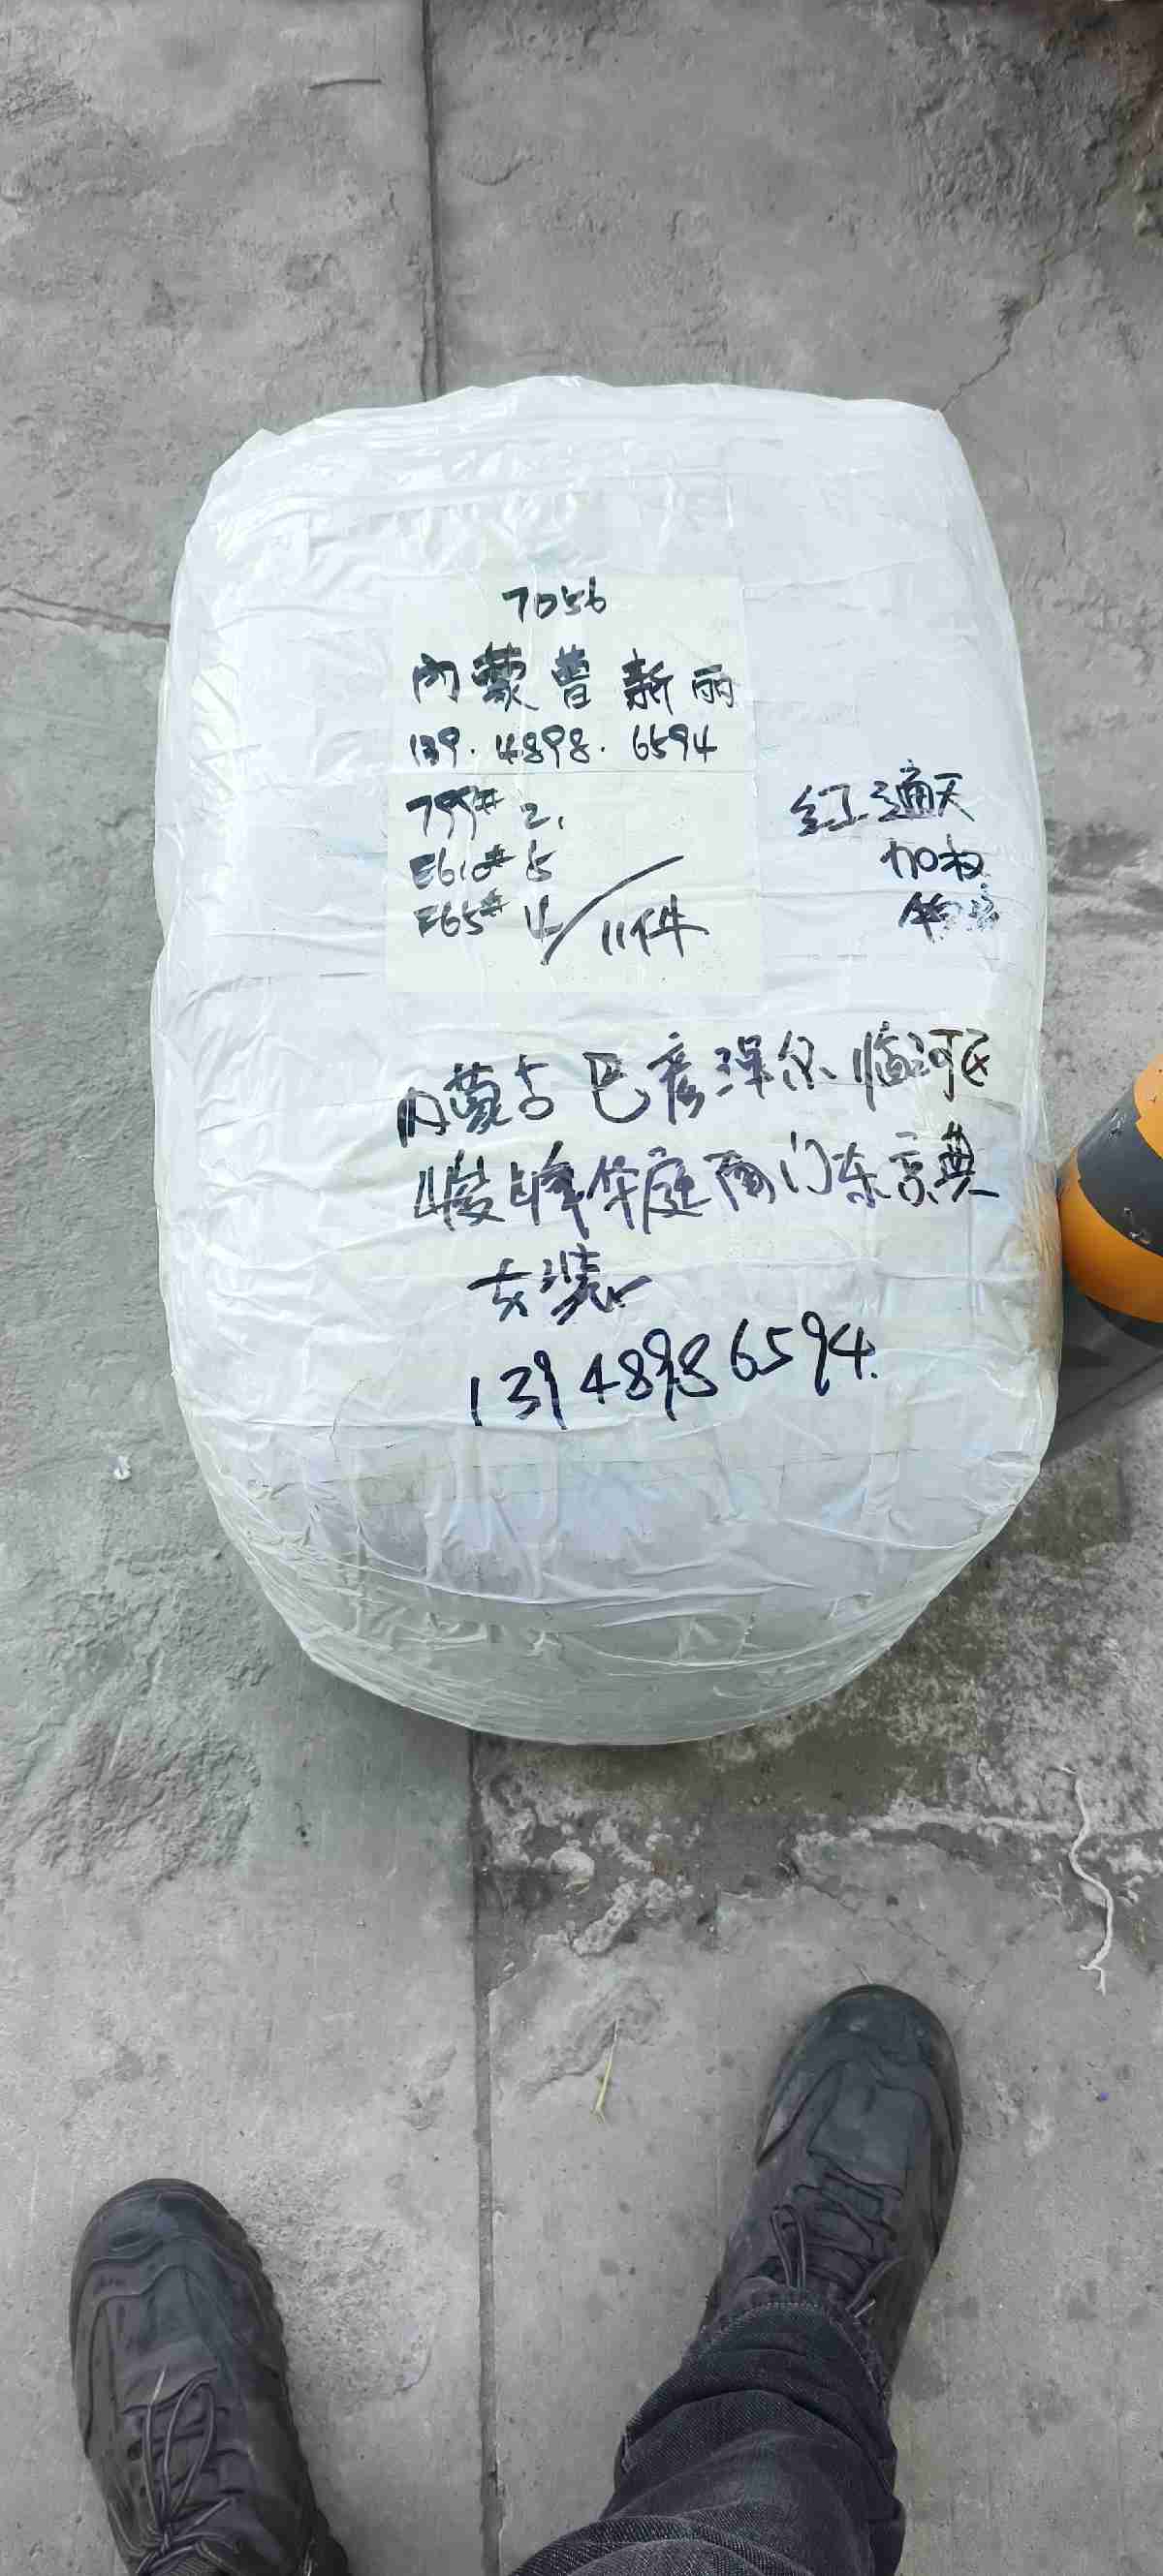 7056
内蒙曹新丽
139.4898.6594
799# 2,
E610# 5
E65# 4 / 11件
红通天
加权
内蒙古巴彦淖尔临河区
峻峰华庭南门东京典
女装
13948986594.